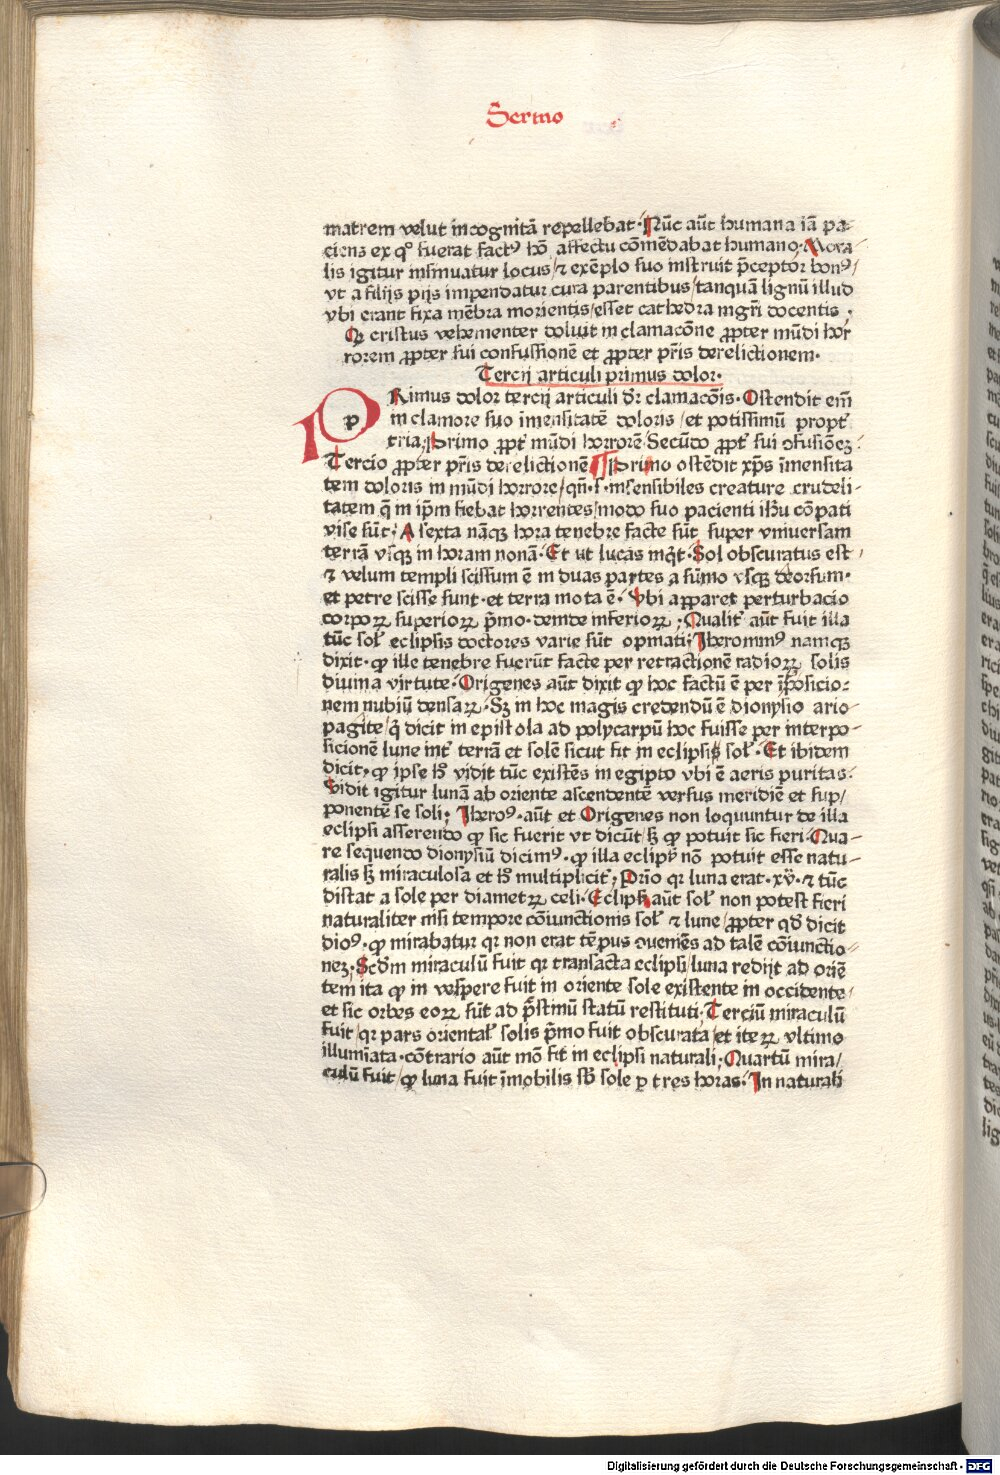 Sermo
matrem velut incognitā repellebat· Nūc aūt humana iā pa-
ciens ex qͦ fuerat factꝰ hō affectu cōmēdabat humano· Mora
lis igitur insinuatur locus/ ⁊ exēplo suo instruit p̄ceptor bonꝰ/
vt a filijs pijs impendatur cura parentibus/ tanquā lignū illud
vbi erant fixa mēbra morientis/ esset cathedra mgr̄i docentis ·
Qꝫ cristus vehementer doluit in clamacōne ꝓpter mūdi hor
rorem ꝓpter sui confussionē et ꝓpter pr̄is derelictionem·
Tercij articuli primus dolor·
p
PRimus dolor tercij articuli dr̄ clamacōis· Ostendit em̄
in clamore suo īmensitatē doloris/ et potissimū propt̄
tria; Primo ꝓpt̄ mūdi horrorē/ Secūdo ꝓpt̄ sui ꝯfusiōeꝫ
Tercio ꝓpter pr̄is derelictionē ¶ Primo ostēdit xp̄s īmensita
tem doloris in mūdi horrore/ qn̄· s· insensibiles creature crudeli-
tatem q̄ in ip̄m fiebat horrentes/ modo suo pacienti ihū cōpati
vise sūt; A sexta nāqꝫ hora tenebre facte sūt super vniuersam
terrā vsqꝫ in horam nonā· Et ut lucas inq̇t· Sol obscuratus est
⁊ velum templi scissum ē in duas partes a sūmo vsqꝫ deorsum·
et petre scisse sunt· et terra mota ē· Vbi apparet perturbacio
corpoꝝ superioꝝ p̄mo· deinde inferioꝝ ; Qualit̄ aūt fuit illa
tūc sol̄ eclipsis doctores varie sūt opinati; Iheronimꝰ namqꝫ
dixit· ꝙ ille tenebre fuerūt facte per retractionē radioꝝ solis
diuina virtute· Origenes aūt dixit ꝙ hoc factū ē per īposicio-
nem nubiū densaꝝ· Sꝫ in hoc magis credendū ē dionysio ario
pagite/ q̇ dicit in epistola ad polycarpū hoc fuisse per interpo-
sicionē lune int̄ terrā et solē sicut fit in eclipsi sol̄· Et ibidem
dicit· ꝙ ipse hͦ vidit tūc existēs in egipto vbi ē aeris puritas·
Vidit igitur lunā ab oriente ascendentē versus meridiē et sup/
ponentē se soli; Iheroꝰ· aūt et Origenes non loquuntur de illa
eclipsi asserendo ꝙ sic fuerit vt dicūt/ sꝫ ꝙ potuit sic fieri· Qua-
re sequendo dionysiū dicimꝰ· ꝙ illa eclipsis nō potuit esse natu-
ralis sꝫ miraculosa et hͦ multiplicit̄; Prīo qꝛ luna erat· xv· ⁊ tūc
distat a sole per diametꝝ celi· Eclipsis aūt sol̄ non potest fieri
naturaliter nisi tempore cōiunctionis sol̄ ⁊ lune/ ꝓpter qd̄ dicit
dioꝰ· ꝙ mirabatur qꝛ non erat tēpus ꝯueniēs ad talē cōiunctio-
neꝫ· Scd̄m miraculū fuit qꝛ transacta eclipsi/ luna redijt ad oriē
tem ita ꝙ in vespere fuit in oriente sole existente in occidente/
et sic orbes eoꝝ sūt ad p̄stinū statū restituti; Terciū miraculū
fuit/ qꝛ pars oriental̄ solis p̄mo fuit obscurata/ et iteꝝ vltimo
illumīata· cōtrario aūt mō fit in eclipsi naturali; Quartū mira/
culū fuit/ ꝙ luna fuit īmobilis sb̄ sole p tres horas· In naturali
Digitalisierung gefördert durch die Deutsche Forschungsgemeinschaft - DFG